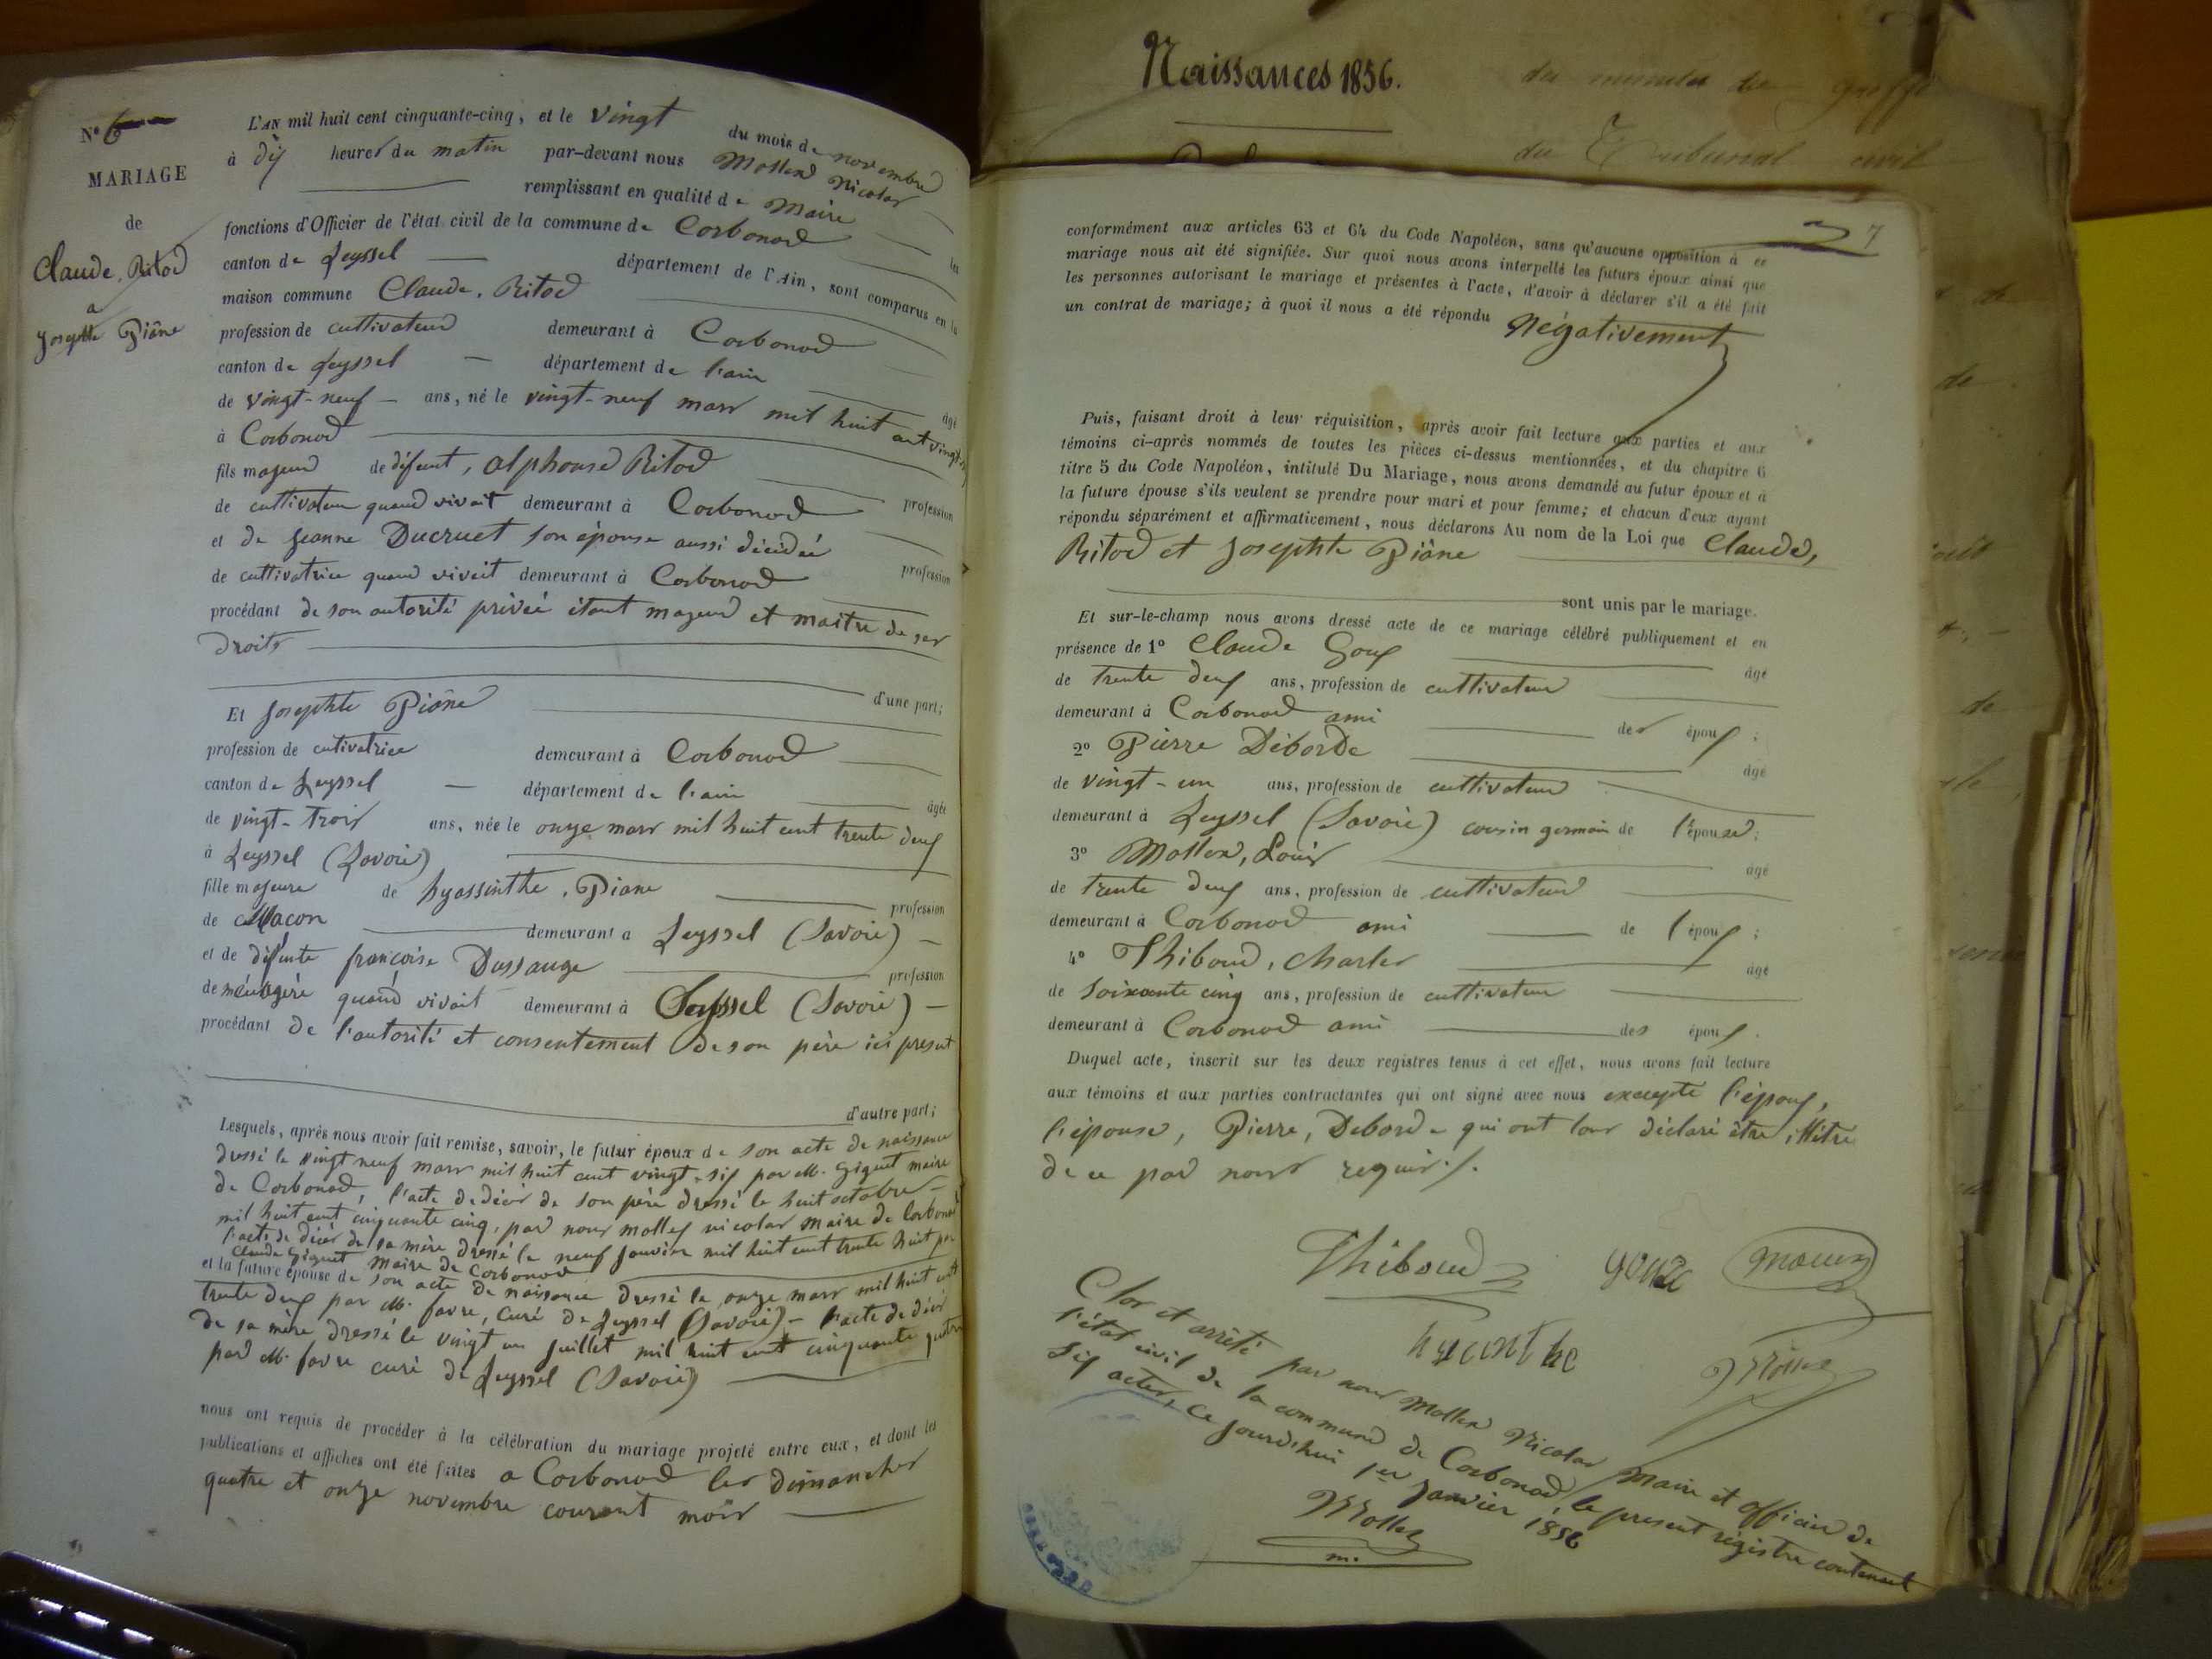 Naissances 1856.
des minutes du greffe
du Tribunal civil
Nº 6
MARIAGE
de
Claude, Ritod
a
Josephte Piâne
L'AN mil huit cent cinquante-cinq, et le vingt du mois de novembre
à dix heures du matin par-devant nous Mollex Nicolas
remplissant en qualité de Maire les
fonctions d'Officier de l'état civil de la commune de Corbonod
canton de Seyssel département de l'Ain, sont comparus en la
maison commune Claude, Ritod
profession de cultivateur demeurant à Corbonod
canton de Seyssel département de l'ain âgé
de vingt-neuf ans, né le vingt-neuf mars mil huit cent vingt-
à Corbonod
fils majeur de défunt, alphonse Ritod profession
de cultivateur quand vivait demeurant à Corbonod
et de Jeanne Ducruet son épouse aussi décédée profession
de cultivatrice quand vivait demeurant à Corbonod
procédant de son autorité privée étant majeur et maitre de ses
droits
d'une part;
Et Josephte Piâne
profession de cutivatrice demeurant à Corbonod
canton de Seyssel département de l'ain âgée
de vingt-trois ans, née le onze mars mil huit cent trente deux
à Seyssel (Savoie)
fille majeure de hyassinthe, Piane profession
de Macon demeurant à Seyssel (Savoie)
et de défunte francoise Dussauge profession
de ménagère quand vivait demeurant à Seyssel (Savoie)
procédant de l'autorité et consentement de son père ici présent
d'autre part;
Lesquels, après nous avoir fait remise, savoir, le futur époux de son acte de naissance
dressé le vingt neuf mars mil huit cent vingt-six par M. Giguet maire
de Corbonod, l'acte de décès de son père dressé le huit octobre
mil huit cent cinquante cinq, par nous mollex nicolas maire de Corbonod
l'acte de décès de sa mère dressé le neuf janvier mil huit cent trente huit par
Claude Giguet maire de Corbonod
et la future épouse de son acte de naissance dressé le onze mars mil huit cent
trente deux par M. favre, curé de Seyssel (Savoie) - l'acte de décès
de sa mère dressé le vingt un juillet mil huit cent cinquante quatre
par M. favre curé de Seyssel (Savoie)
nous ont requis de procéder à la célébration du mariage projeté entre eux, et dont les
publications et affiches ont été faites a Corbonod les dimanches
quatre et onze novembre courant mois
7
conformément aux articles 63 et 64 du Code Napoléon, sans qu'aucune opposition à ce
mariage nous ait été signifiée. Sur quoi nous avons interpellé les futurs époux ainsi que
les personnes autorisant le mariage et présentes à l'acte, d'avoir à déclarer s'il a été fait
un contrat de mariage; à quoi il nous a été répondu Négativement
Puis, faisant droit à leur réquisition, après avoir fait lecture aux parties et aux
témoins ci-après nommés de toutes les pièces ci-dessus mentionnées, et du chapitre 6
titre 5 du Code Napoléon, intitulé Du Mariage, nous avons demandé au futur époux et à
la future épouse s'ils veulent se prendre pour mari et pour femme; et chacun d'eux ayant
répondu séparément et affirmativement, nous déclarons Au nom de la Loi que Claude,
Ritod et Josephte Piâne
sont unis par le mariage.
Et sur-le-champ nous avons dressé acte de ce mariage célébré publiquement et en
présence de 1º Claude Goux âgé
de trente deux ans, profession de cultivateur
demeurant à Corbonod ami des époux;
2º Pierre Déborde âgé
de vingt-un ans, profession de cultivateur
demeurant à Seyssel (Savoie) cousin germain de l'épouse;
3º Mollex, Louis âgé
de trente deux ans, profession de cultivateur
demeurant à Corbonod ami de l'époux;
4º Thiboud, Charles âgé
de Soixante cinq ans, profession de cultivateur
demeurant à Corbonod ami des époux.
Duquel acte, inscrit sur les deux registres tenus à cet effet, nous avons fait lecture
aux témoins et aux parties contractantes qui ont signé avec nous excepté l'époux,
l'épouse, Pierre, Deborde qui ont tous déclaré être illitré
de ce par nous requis ./.
Thiboud goux
hyacinthe Mollex
Clos et arrêté par nous Mollex Nicolas Maire et officier de
l'état civil de la commune de Corbonod, le present régistre contenant
Six actes, ce jourd'hui 1er Janvier 1856
Mollex
m.